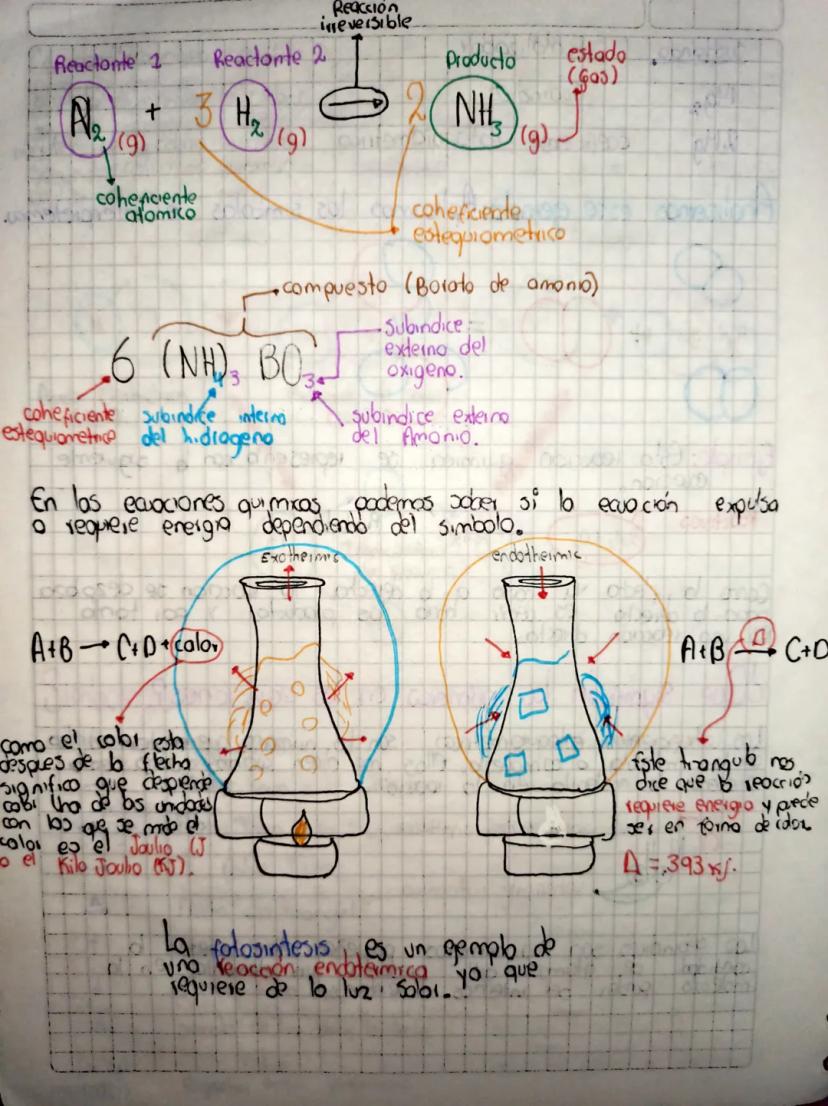 Reacción
irreversible
Reactante 1 Reactante 2 Producto estado
(Gas)
N2 (g) + 3 H2 (g) → 2 NH3 (g)
coheficiente
atomico
coheficiente
estequiometrico
compuesto (Borato de amonio)
subindice
externo del
oxigeno.
6 (NH4)3 BO3
coheficiente
estequiometrico
subindice interno
del hidrogeno
subindice externo
del Amonio.
En las ecuaciones quimicas podemos saber si la ecuación expulsa
o requiere energia dependiendo del simbolo.
Exothermic endothermic
A+B → C+D + calor
A+B Δ→ C+D
como el calor esta
despues de la flecha
significa que desprende
calor Una de las unidades
con las que se mide el
calor es el Joulio (J
o el Kilo Joulio (KJ).
Este triangulo nos
dice que la reacción
requiere energia y puede
ser en forma de calor
Δ = 393 KJ.
La fotosintesis es un ejemplo de
una reacción endotermica ya que
requiere de la luz solar.